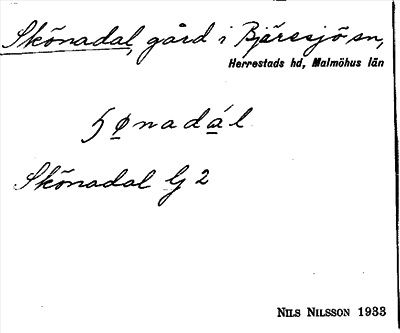 Skönadal, gård i Bjäresjö sn,
Herrestads hd, Malmöhus län
ɧønadál
Skönadal G 2
NILS NILSSON 1933